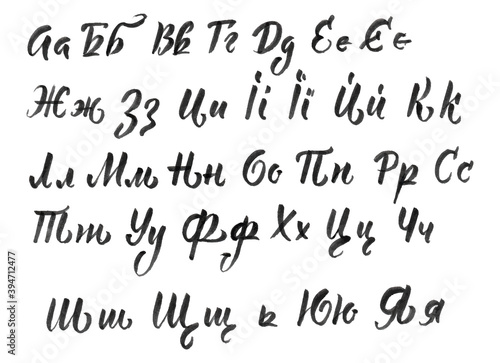 Аа Бб Вв Гг Дд Ее Єє
Жж Зз Ии Іі Її Йй Кк
Лл Мм Нн Оо Пп Рр Сс
Тт Уу Фф Хх Цц Чч
Шш Щщ ь Юю Яя
Adobe Stock | #394712477